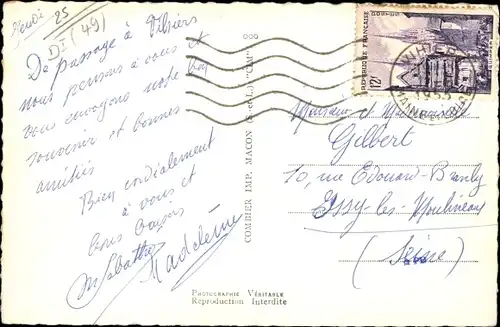 Jeudi 25
DI (49)
De passage à Vihiers
nous pensons à vous et
vous envoyons notre
souvenir et bonnes
amitiés
Bien cordialement
à vous et
bons baisers
Madeleine
COMBIER IMP. MACON (S.-et-L.) "CIM"
PHOTOGRAPHIE VÉRITABLE
Reproduction Interdite
POSTES
RÉPUBLIQUE FRANÇAISE
12F
VIHIERS
MAINE-ET-LOIRE
Monsieur et
Gilbert
10, rue Edouard-Branly
Issy-les-Moulineaux
(Seine)